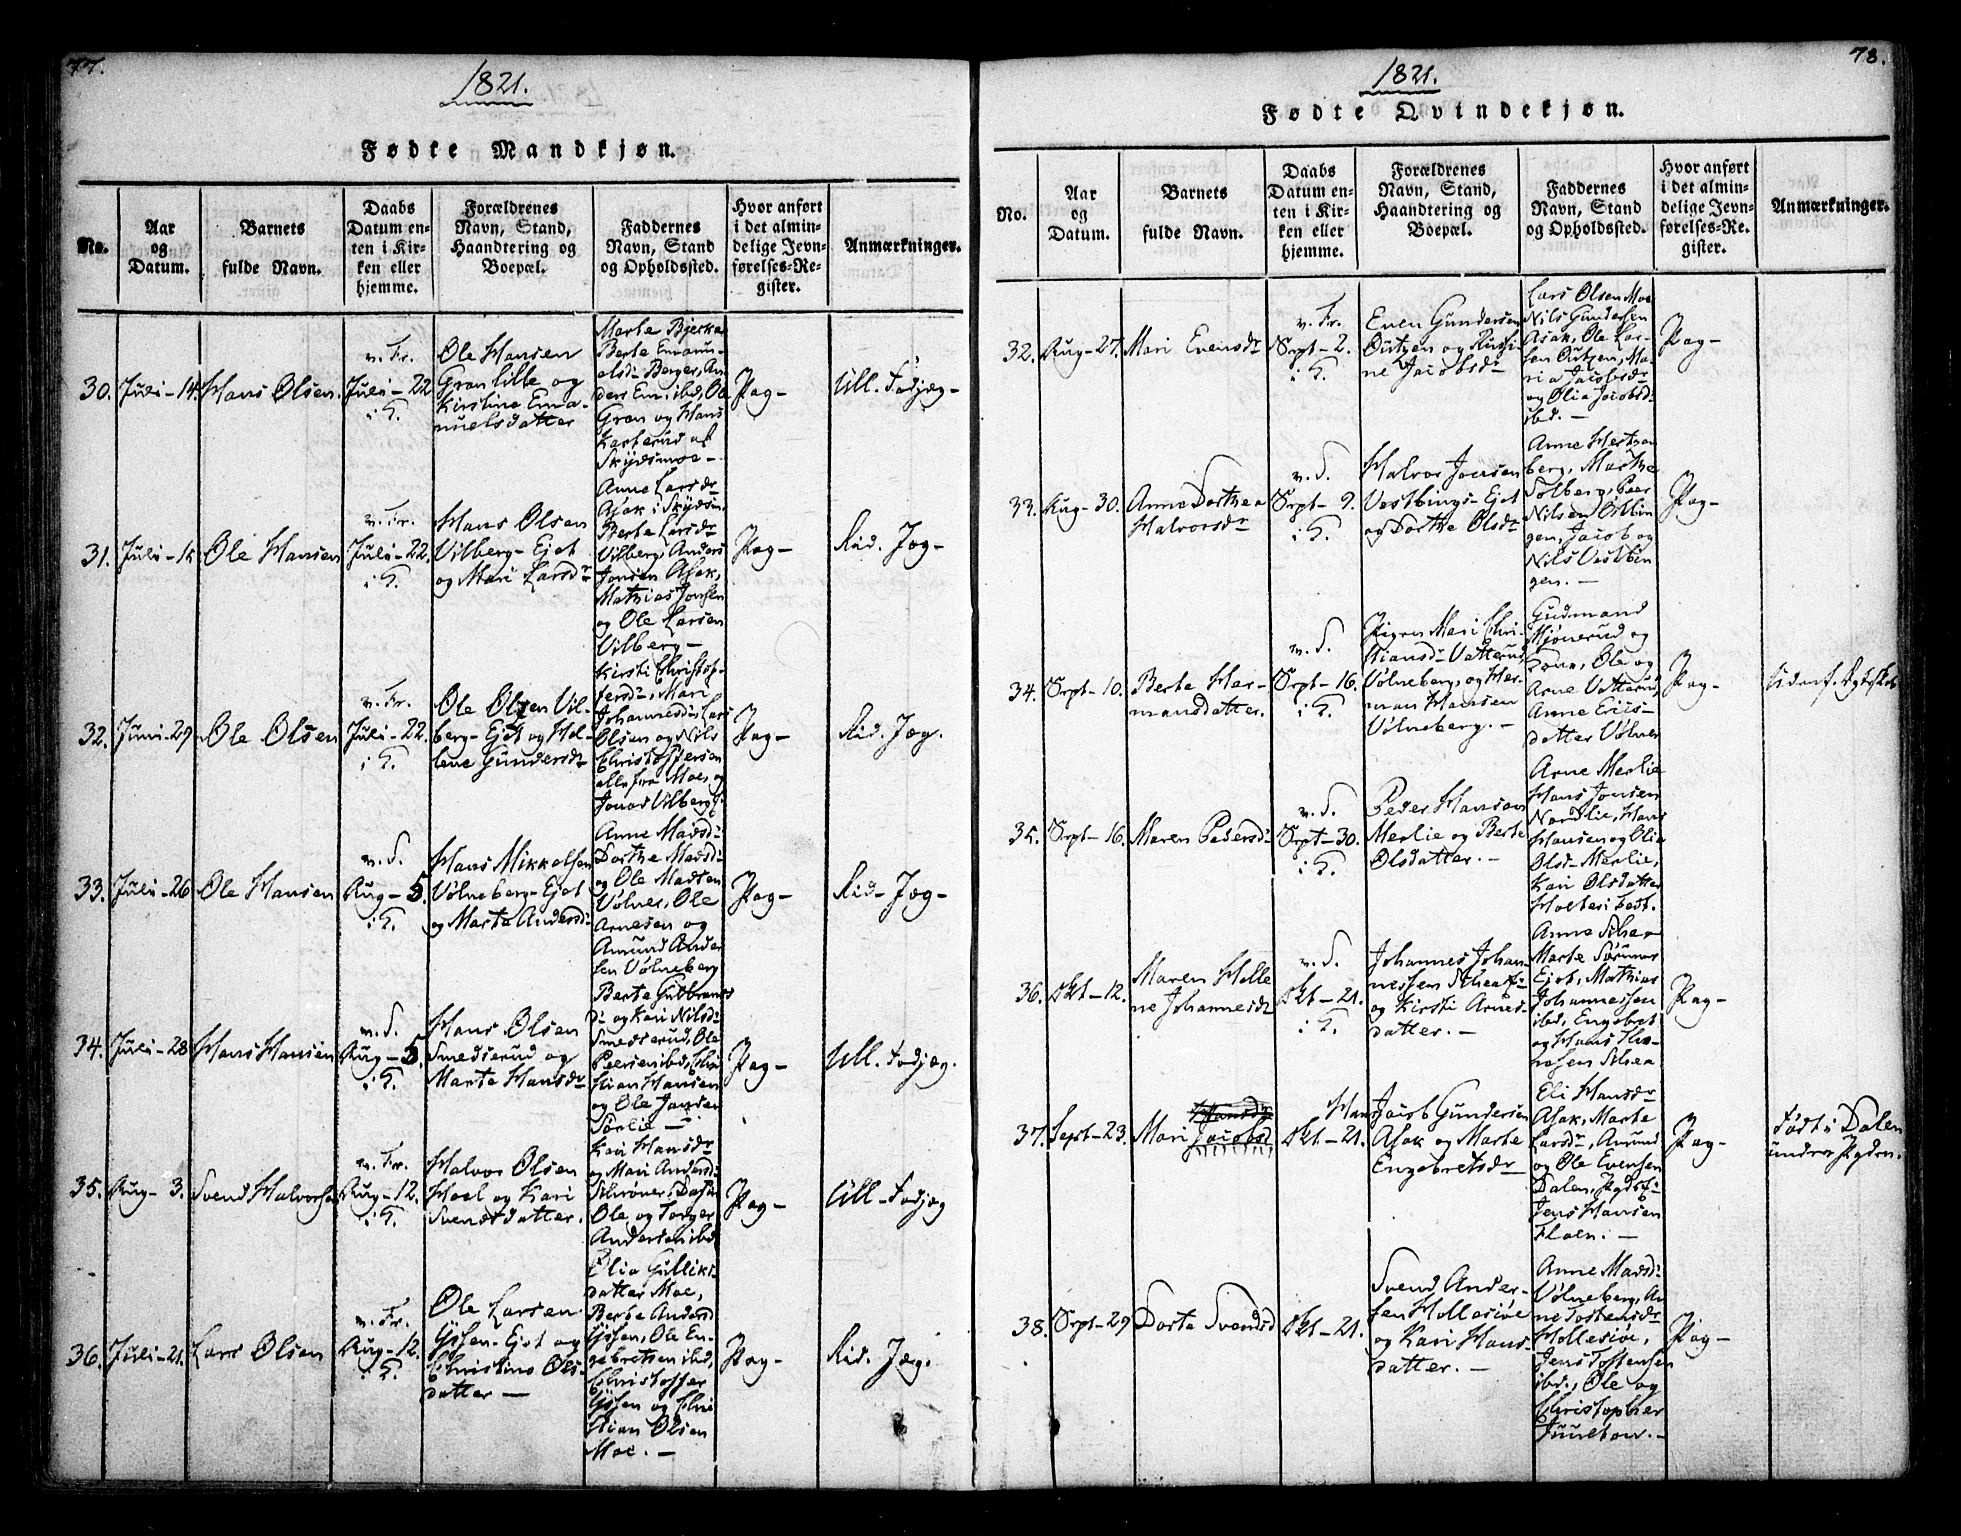 77.
1821.
Fødte Mandkjøn.
No.
Aar
og
Datum.
Barnets
fulde Navn.
Daabs
Datum en-
ten i Kir-
ken eller
hjemme.
Forældrenes
Navn, Stand,
Haandtering og
Boepæl.
Faddernes
Navn, Stand
og Opholdssted.
Hvor anført
i det almin-
delige Jevn-
førelses-Re-
gister.
Anmærkninger.
30.
Juli - 14.
Hans Olsen.
v. Fr.
Juli - 22
i K.
Ole Hansen
Gran lille og
Kirstine Ema-
nuelsdatter
Marte Bjerka
Berte Emanu-
elsdr Berger, An-
ders Em. ibd, Ole
Gran og Hans
Karterud af
Skydsmoe -
Pag -
Ull. Fodjæg -
31.
Juli -
Ole Hansen
v. Fr.
Juli - 22.
i K.
Hans Olsen
Vilberg - Ejet
og Mari Larsdr
Anne Larsdr
Asak i Skydsm.
Berte Larsdr
Vilberg, Anders
Jonsen Asak,
Mathias Jonsen
og Ole Larsen
Vilberg -
Pag -
Rid. Jæg -
32.
Juni - 29
Ole Olsen
v. Fr.
Juli - 22.
i K.
Ole Olsen Vil-
berg - Ejet og Hel-
lene Gundersdr
Kirsti Christof-
fersdr, Mari
Johannesdr, Lars
Olsen og Nils
Christoffersen
alle fra Moe, og
Jonas Vilberg
Pag -
Rid. Jæg.
33.
Juli - 26
Ole Hansen
v. S.
Aug - 5.
i K.
Hans Mikkelsen
Vølneberg - Ejet
og Marte Andersdr
Anne Madsdr
Dorthe Madsdr
og Ole Madsen
Vølner, Ole
Arnesen og
Amund Ander
sen Vølneberg
Pag -
Rid - Jæg -
34.
Juli - 28
Hans Hansen
v. S.
Aug - 5.
i K.
Hans Olsen
Smedserud og
Marte Hansdr
Berte Gulbrands
dr og Kari Nilsdr
Smedserud, Ole
Peersen ibd, Chri
stian Hansen
og Ole Jonsen
Sørlie -
Pag -
Ull. Fodjæg.
35.
Aug - 3.
Svend Halvorsen
v. Fr.
Aug - 12.
i K.
Halvor Olsen
Hoel og Kari
Svendsdatter.
Kari Hansdr
og Mari Andersdr
Ole og Torger
Andersen ibd
Pag -
Ull - Fodjæg
36.
Juli - 21.
Lars Olsen
v. Fr.
Aug - 12.
i K.
Ole Larsen
Ejet og
Christine Ols-
datter -
Olia Gulliks-
datter Moe,
Berte Andersd
Ole En-
gebretsen ibd,
Christoffer
og Chri
stian Olsen
Moe. -
Pag -
Rid. Jæg.
78.
1821.
Fødte Qvindekjøn.
No.
Aar
og
Datum.
Barnets
fulde Navn.
Daabs
Datum en-
ten i Kir-
ken eller
hjemme.
Forældrenes
Navn, Stand,
Haandtering og
Boepæl.
Faddernes
Navn, Stand
og Opholdssted.
Hvor anført
i det almin-
delige Jevn-
førelses-Re-
gister.
Anmærkninger.
32.
Aug - 27.
Mari Evensdr
v. Fr.
Sept - 2.
i K.
Even Gundersen
Outzen og Rusti-
ne Jacobsdr
Lars Olsen Moe
Nils Gundersen
Asak, Ole Lar-
sen Outzen, Ma-
ria Jacobsdr
og Olia Jacobsd.
ibd. -
Pag -
33.
Aug - 30.
Anne Dorthea
Halvorsdr
v. S.
Sept - 9.
i K.
Halvor Joensen
Vestbings - Ejet
og Dorthe Olsdr
Anne Hertzen
berg, Marthe
Solberg, Peer
Nilsen
Jacob og
Nils Vestbin
gen. -
Pag -
34.
Sept - 10.
Berte Her-
mansdatter.
v. S.
Sept - 16.
i K.
Pigen Mari Chri-
stiansdr Vatterud
Vølneberg, og Her-
man Hansen
Vølneberg. -
Gudmand
Mjønerud og
Ole og
Arne Vatterud,
Anne Erics-
datter Vølner
Pag -
35.
Sept - 16.
Maren Pedersdr
v. S.
Sept - 30.
i K.
Peder Hansen
Merlie og Berte
Olsdatter. -
Arne Merlie
Hans Jonsen
Nordlie, Hans
Hansen og Olia
Olsd Merlie,
Kari Olsdatter
Holter i
Pag -
36.
Okt - 12.
Maren Helle
ne Johannesdr
v. S.
Okt - 21.
i K.
Johannes Johan
nessen
og Kirsti Arnes-
datter. -
Anne
Marte Sørmoe
Ejet, Mathias
Johannessen
ibd, Engebret
og Hans
Pag -
37.
Sept - 23.
Mari Jacobsd
Hansdr
Okt - 21.
Hans Jacob Gundersen
Asak og Marte
Engebretsdr
Eli Hansdr
Asak, Marte
Larsdr, Amund
og Ole Evensen
Dalen,
Jens Hansen
Floen. -
Pag -
Født i Dalen
under
38.
Sept - 29
Dorte Svendsd
Okt - 21.
Svend Ander-
sen Hollesiøe
og Kari Hans-
datter. -
Anne Madsdr
Vølneberg, An
ne Tostensdr
Hollesiøe,
Jens Tostensen
ibd., Ole og
Christopher
Juueton. -
Pag -